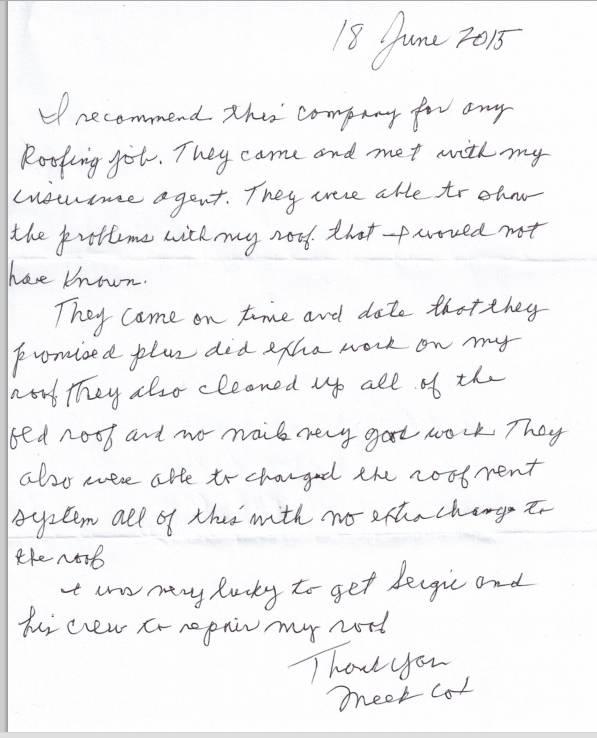 18 June 2015
I recommend this company for any
Roofing job. They came and met with my
insurance agent. They were able to show
the problems with my roof. that I would not
have known.
They came on time and date that they
promised plus did extra work on my
roof They also cleaned up all of the
old roof and no nails very good work They
also were able to changed the roof vent
system all of this with no extra change to
the roof
I was very lucky to get Sergie and
his crew to repair my roof
Thank you